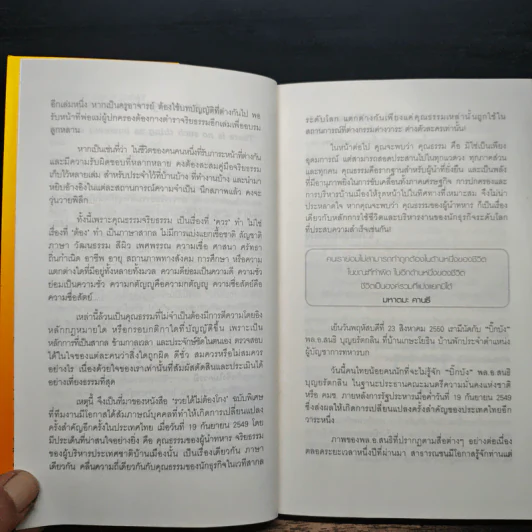 อีกเล่มหนึ่ง หากเป็นครูอาจารย์ ต้องใช้บทบัญญัติที่ต่างกันไป พอ
รับหน้าที่พ่อแม่ผู้ปกครองต้องกางตำราจริยธรรมอีกเล่มเพื่ออบรม
ลูกหลาน
หากเป็นเช่นที่ว่า ในชีวิตของคนคนหนึ่งที่รับภาระหน้าที่ต่างกัน
และมีความรับผิดชอบที่หลากหลาย คงต้องสะสมคู่มือจริยธรรม
เก็บไว้หลายเล่ม สำหรับประจำไว้ที่บ้านบ้าง ที่ทำงานบ้าง และนำมา
หยิบอ้างอิงในแต่ละสถานการณ์ความจำเป็น นึกสภาพแล้ว คงจะ
วุ่นวายพิลึก
ทั้งนี้เพราะคุณธรรมจริยธรรม เป็นเรื่องที่ "ควร" ทำ ไม่ใช่
เรื่องที่ "ต้อง" ทำ เป็นภาษาสากล ไม่มีการแบ่งแยกเชื้อชาติ สัญชาติ
ภาษา วัฒนธรรม สีผิว เพศพรรณ ความเชื่อ ศาสนา ศรัทธา
ถิ่นกำเนิด อาชีพ อายุ สถานภาพทางสังคม การศึกษา หรือความ
แตกต่างใดที่มีอยู่ทั้งหลายทั้งมวล ความดีย่อมเป็นความดี ความชั่ว
ย่อมเป็นความชั่ว ความกตัญญูคือความกตัญญู ความซื่อสัตย์คือ
ความซื่อสัตย์...
เหล่านี้ล้วนเป็นคุณธรรมที่ไม่จำเป็นต้องมีการตีความโดยอิง
หลักกฎหมายใด หรือกรอบกติกาใดที่บัญญัติขึ้น เพราะเป็น
หลักการที่เป็นสากล ข้ามกาลเวลา และประจักษ์ชัดในตนเอง ตรวจสอบ
ได้ในใจของแต่ละคนว่าสิ่งใดถูกผิด ดีชั่ว สมควรหรือไม่สมควร
อย่างไร เนื่องด้วยใจของเราเท่านั้นที่สัมผัสตัดสินและประเมินได้
อย่างเที่ยงธรรมที่สุด
เหตุนี้ จึงเป็นที่มาของหนังสือ "รวยได้ไม่ต้องโกง" ฉบับพิเศษ
ที่ทีมงานมีโอกาสได้สัมภาษณ์บุคคลที่ทำให้เกิดการเปลี่ยนแปลง
ครั้งสำคัญอีกครั้งในประเทศไทย เมื่อวันที่ 19 กันยายน 2549 โดย
มีประเด็นที่น่าสนใจอย่างยิ่ง คือ คุณธรรมของผู้นำทหาร จริยธรรม
ของผู้บริหารประเทศชาติบ้านเมืองนั้น เป็นเรื่องเดียวกัน ภาษา
เดียวกัน คลื่นความถี่เดียวกันกับคุณธรรมของนักธุรกิจในเวทีสากล
ระดับโลก แตกต่างกันเพียงแต่คุณธรรมเหล่านั้นถูกใช้ใน
สถานการณ์ที่ต่างกรรมต่างวาระ ต่างตัวละครเท่านั้น!
ในหน้าต่อไป คุณจะพบว่า คุณธรรม คือ มิใช่เป็นเพียง
อุดมการณ์ แต่สามารถสอดประสานไปในทุกแวดวง ทุกภาคส่วน
และทุกคน คุณธรรมคือรากฐานสำหรับผู้นำที่ยั่งยืน และเป็นพลัง
ที่มีอานุภาพยิ่งในการขับเคลื่อนทั้งภาคเศรษฐกิจ การปกครองและ
การบริหารบ้านเมืองให้รุดหน้าไปในทิศทางที่เหมาะสม จึงไม่น่า
ประหลาดใจ หากคุณจะพบว่า คุณธรรมของผู้นำทหาร ก็เป็นเรื่อง
เดียวกับหลักการใช้ชีวิตและบริหารงานของนักธุรกิจระดับโลก
ที่ประสบความสำเร็จเช่นกัน!
คนเราย่อมไม่สามารถทำถูกต้องในด้านหนึ่งของชีวิต
ในขณะที่ทำผิด ในอีกด้านหนึ่งของชีวิต
ชีวิตเป็นองค์รวมที่แบ่งแยกมิได้
มหาตมะ คานธี
เย็นวันพฤหัสบดีที่ 23 สิงหาคม 2550 เรามีนัดกับ "บิ๊กบัง"
พล.อ.สนธิ บุญยรัตกลิน ที่บ้านเกษะโกมล บ้านพักประจำตำแหน่ง
ผู้บัญชาการทหารบก
วันนี้คนไทยน้อยคนนักที่จะไม่รู้จัก "บิ๊กบัง" พล.อ.สนธิ
บุญยรัตกลิน ในฐานะประธานคณะมนตรีความมั่นคงแห่งชาติ
หรือ คมช. ภายหลังการรัฐประหารเมื่อค่ำวันที่ 19 กันยายน 2549
ซึ่งส่งผลให้เกิดการเปลี่ยนแปลงครั้งสำคัญของประเทศไทยอีก
วาระหนึ่ง
ภาพของพล.อ.สนธิที่ปรากฏตามสื่อต่างๆ อย่างต่อเนื่อง
ตลอดระยะเวลาหนึ่งปีที่ผ่านมา สาธารณชนมีโอกาสรู้จักท่านแค่